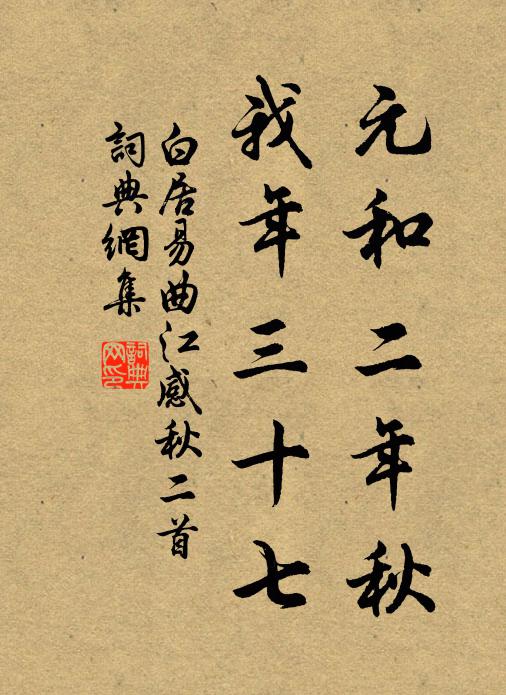 元和二年秋
我年三十七
白居易曲江感秋二首
詞典網集
詞典網印